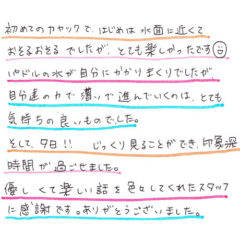 初めてのカヤックで、はじめは水面に近くて
おそるおそるでしたが、とても楽しかったです
パドルの水が自分にかかりまくりでしたが、
自分達の力で漕いで進んでいくのは、とても
気持ちの良いものでした。
そして、夕日!! じっくり見ることができ、印象深い
時間が過ごせました。
優しくて楽しい話を色々してくれたスタッフ
に感謝です。ありがとうございました。